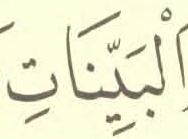 الْبَيِّنَاتِ